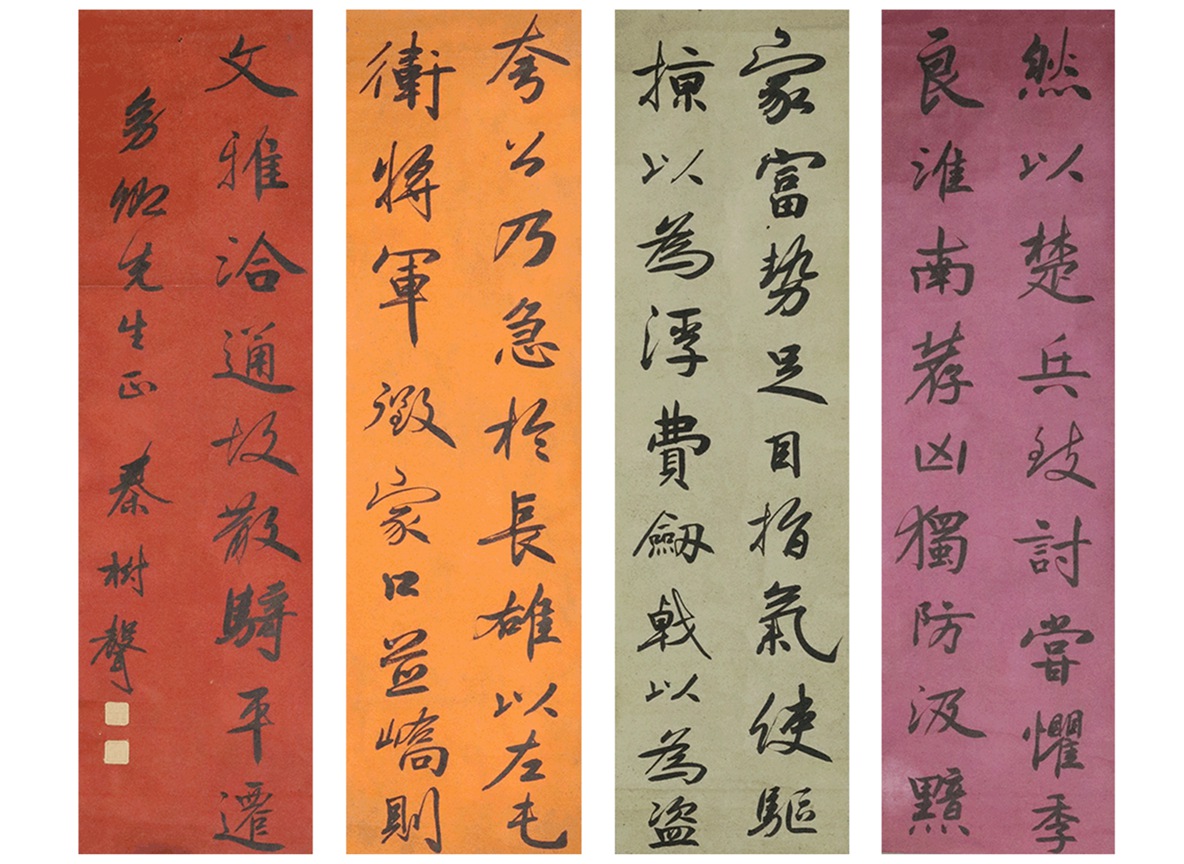 然以楚兵致討嘗懼季
良淮南荐凶獨防汲黯
家富勢足目指氣使驅
掠以為浮費劔戟以為盜
夸公乃急於長雄以左屯
衛將軍徵家口並嶠則
文雅洽通故散騎平遷
卿先生正 秦樹聲